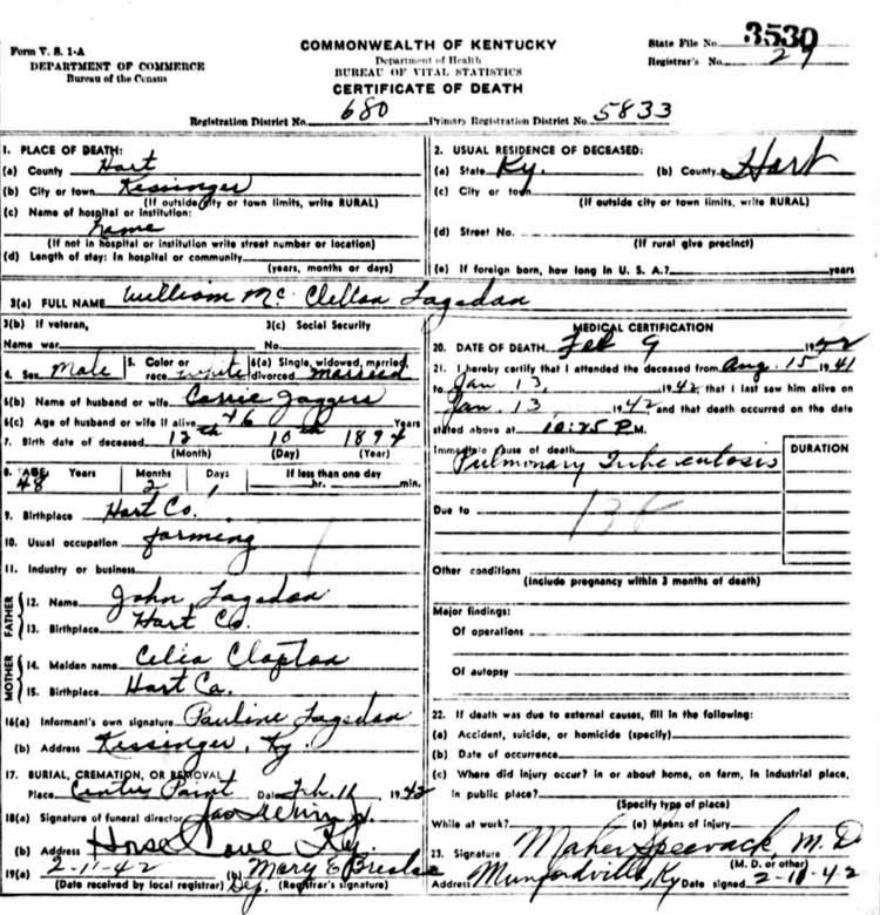 Form V. S. 1-A
DEPARTMENT OF COMMERCE
Bureau of the Census
COMMONWEALTH OF KENTUCKY
Department of Health
BUREAU OF VITAL STATISTICS
CERTIFICATE OF DEATH
State File No. 3530
Registrar's No. 29
Registration District No. 680 Primary Registration District No. 5833
1. PLACE OF DEATH:
(a) County Hart
(b) City or town Kessinger
(If outside city or town limits, write RURAL)
(c) Name of hospital or institution:
home
(If not in hospital or institution write street number or location)
(d) Length of stay: In hospital or community
(years, months or days)
2. USUAL RESIDENCE OF DECEASED:
(a) State Ky. (b) County Hart
(c) City or town
(If outside city or town limits, write RURAL)
(d) Street No.
(If rural give precinct)
(e) If foreign born, how long in U. S. A.? years
3(a) FULL NAME William Mc Clellan Logsdon
3(b) If veteran, 3(c) Social Security
Name war No.
4. Sex Male 5. Color or race white 6(a) Single, widowed, married, divorced married
6(b) Name of husband or wife Carrie Jaggers
6(c) Age of husband or wife if alive 46 Years
7. Birth date of deceased 12th 10th 1894
(Month) (Day) (Year)
8. AGE: Years Months Days If less than one day
48 2 hr. min.
9. Birthplace Hart Co.
10. Usual occupation farming
11. Industry or business
FATHER
12. Name John Logsdon
13. Birthplace Hart Co.
MOTHER
14. Maiden name Celia Clopton
15. Birthplace Hart Co.
16(a) Informant's own signature Pauline Logsdon
(b) Address Kessinger, Ky.
17. BURIAL, CREMATION, OR REMOVAL
Place Center Point Date Feb. 11, 1942
18(a) Signature of funeral director
(b) Address Horse Cave Ky.
19(a) 2-11-42 (b) Mary E
(Date received by local registrar) Dep. (Registrar's signature)
MEDICAL CERTIFICATION
20. DATE OF DEATH Feb 9 1942
21. I hereby certify that I attended the deceased from Aug. 15 1941
to Jan 13, 1942, that I last saw him alive on
Jan. 13, 1942 and that death occurred on the date
stated above at 10:25 P.M.
Immediate cause of death DURATION
Pulmonary Tuberculosis
Due to
Other conditions
(Include pregnancy within 3 months of death)
Major findings:
Of operations
Of autopsy
22. If death was due to external causes, fill in the following:
(a) Accident, suicide, or homicide (specify)
(b) Date of occurrence
(c) Where did injury occur? In or about home, on farm, in industrial place,
in public place?
(Specify type of place)
While at work? (e) Means of injury
23. Signature Maher Speevack, M. D.
(M. D. or other)
Address Munfordville, Ky Date signed 2-11-42